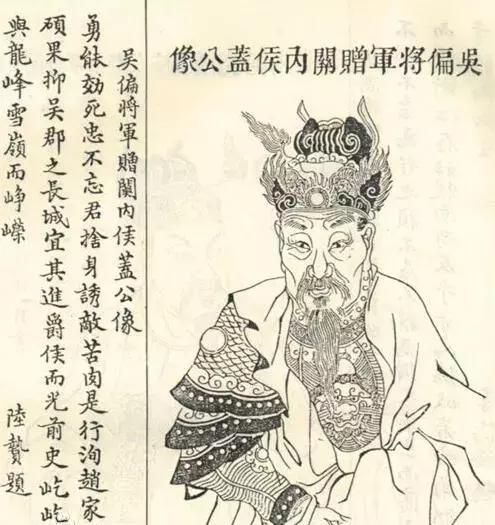 吳偏将軍贈關內侯蓋公像
吳偏將軍贈關内侯蓋公像
勇能効死忠不忘君捨身誘敵苦肉是行洵趙家
碩果抑吳郡之長城宜其進爵侯而光前史屹屹
與龍峰雪嶺而崢嶸 陸贄題